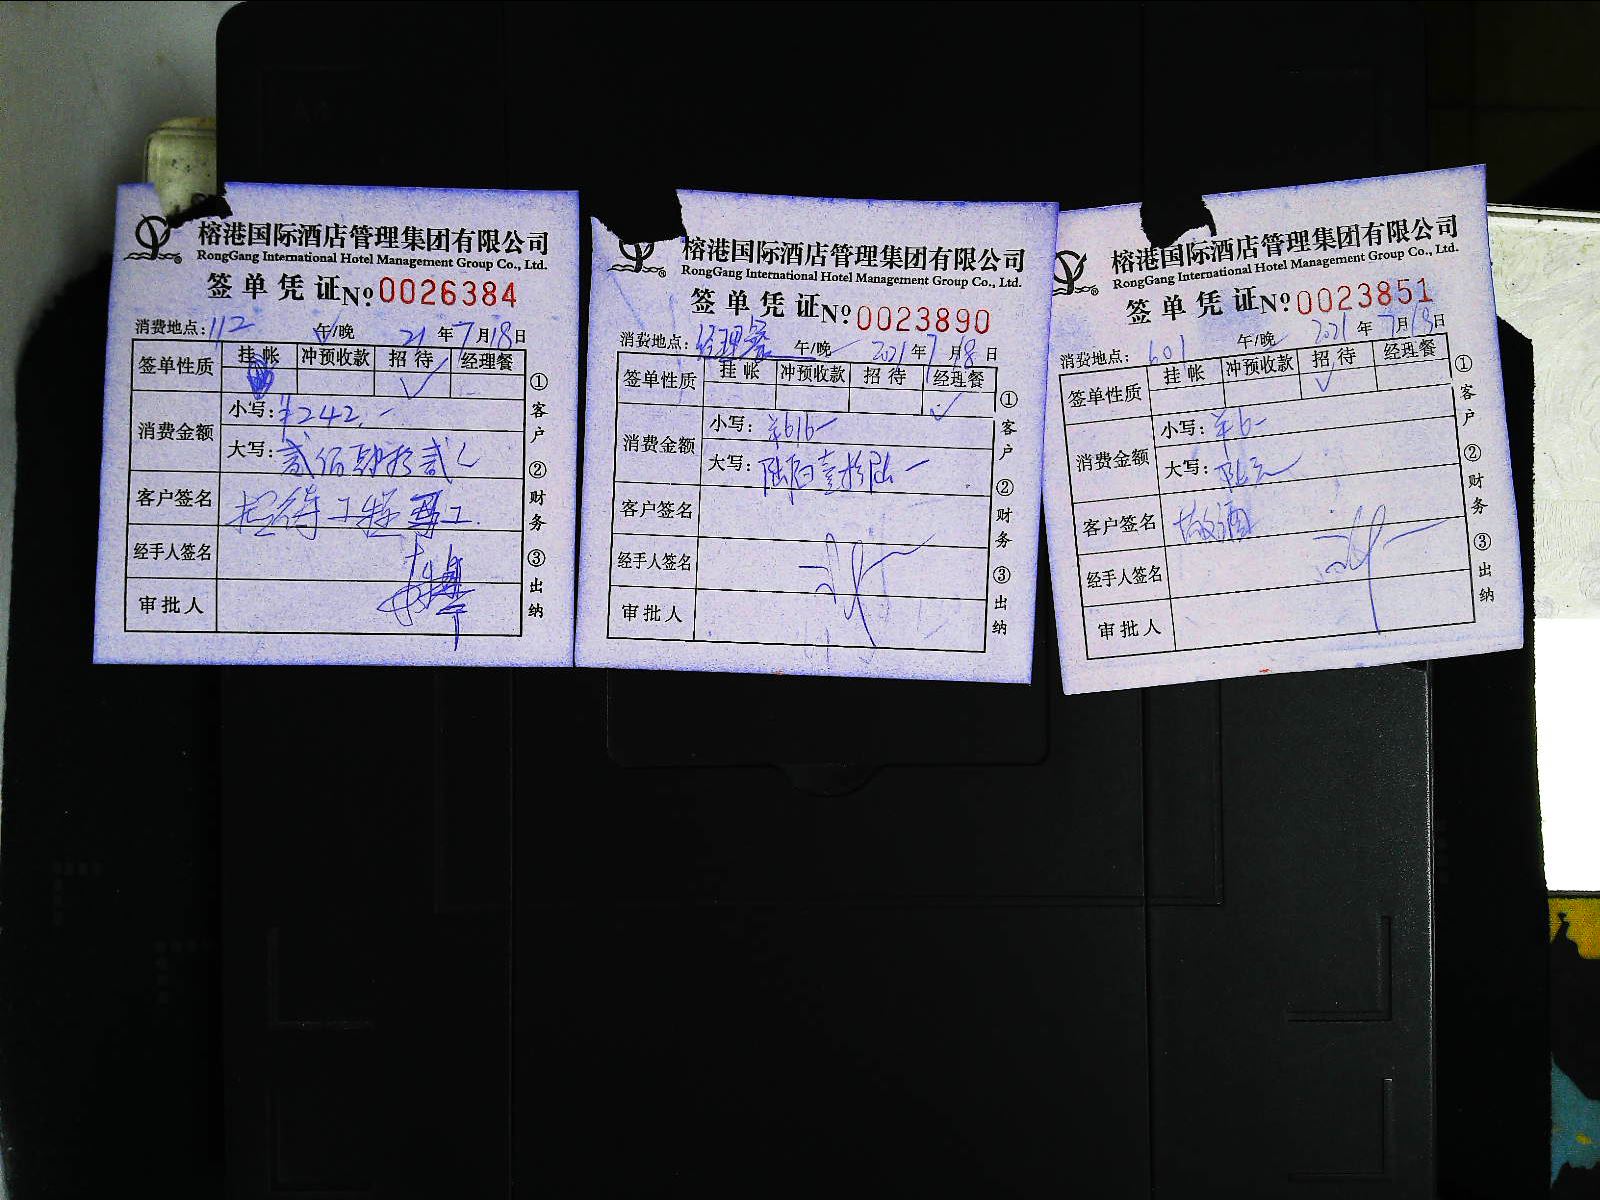 榕港国际酒店管理集团有限公司
RongGang International Hotel Management Group Co., Ltd.
签单凭证 Nº 0026384
消费地点: 112 午/晚 21年7月18日
签单性质 挂帐 冲预收款 招待 经理餐
✓
消费金额 小写: ¥242.-
大写: 贰佰肆拾贰
客户签名 招待工程
经手人签名
审批人
①客户 ②财务 ③出纳
榕港国际酒店管理集团有限公司
RongGang International Hotel Management Group Co., Ltd.
签单凭证 Nº 0023890
消费地点: 经理餐 午/晚 2021年7月18日
签单性质 挂帐 冲预收款 招待 经理餐
✓
消费金额 小写: ¥616-
大写: 陆佰壹拾陆
客户签名
经手人签名
审批人
①客户 ②财务 ③出纳
榕港国际酒店管理集团有限公司
RongGang International Hotel Management Group Co., Ltd.
签单凭证 Nº 0023851
消费地点: 601 午/晚 2021年7月18日
签单性质 挂帐 冲预收款 招待 经理餐
✓
消费金额 小写: ¥6-
大写: 陆元
客户签名 敬酒
经手人签名
审批人
①客户 ②财务 ③出纳